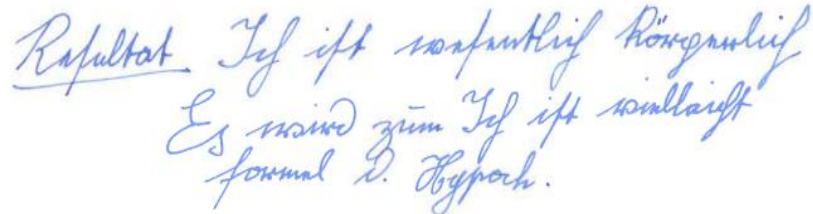 Resultat Ich ist wesentlich körperlich
Es wird zum Ich ist vielleicht
formel d. Hypoch.